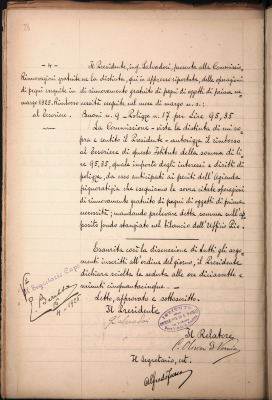 78
- 4 - Il Presidente, ing. Salvadori, presenta alla Commissio-
Rinnovazioni gratuite ne la distinta, qui in appresso riportata, delle operazioni
di pegni eseguite in di rinnovamento gratuito di pegni di oggetti di prima ne-
marzo 1925. Rimborso cessità eseguite nel mese di marzo u. s.:
al Esercizio. Buoni n. 9 - Polizze n. 17 per Lire 95,85
La Commissione - vista la distinta di cui so-
pra e sentito il Presidente - autorizza il rimborso
al Esercizio di questo Istituto della somma di li-
re 95,85, quale importo degli interessi e diritti di
polizza, da esso anticipati ai periti dell'Azienda
pignoratizia che eseguirono le sovra citate operazioni
di rinnovamento gratuito di pegni di oggetti di prima
necessità; mandando prelevare detta somma sull'ap-
posito fondo stanziato nel bilancio dell'Ufficio Pio.
Esaurita così la discussione di tutti gli argo-
menti inscritti all'ordine del giorno, il Presidente
dichiara sciolta la seduta alle ore diciassette e
minuti cinquantacinque. -
Letto, approvato e sottoscritto.
Il Presidente
Il Segretario Capo
4 - 1925
Il Relatore
Il Segretario,